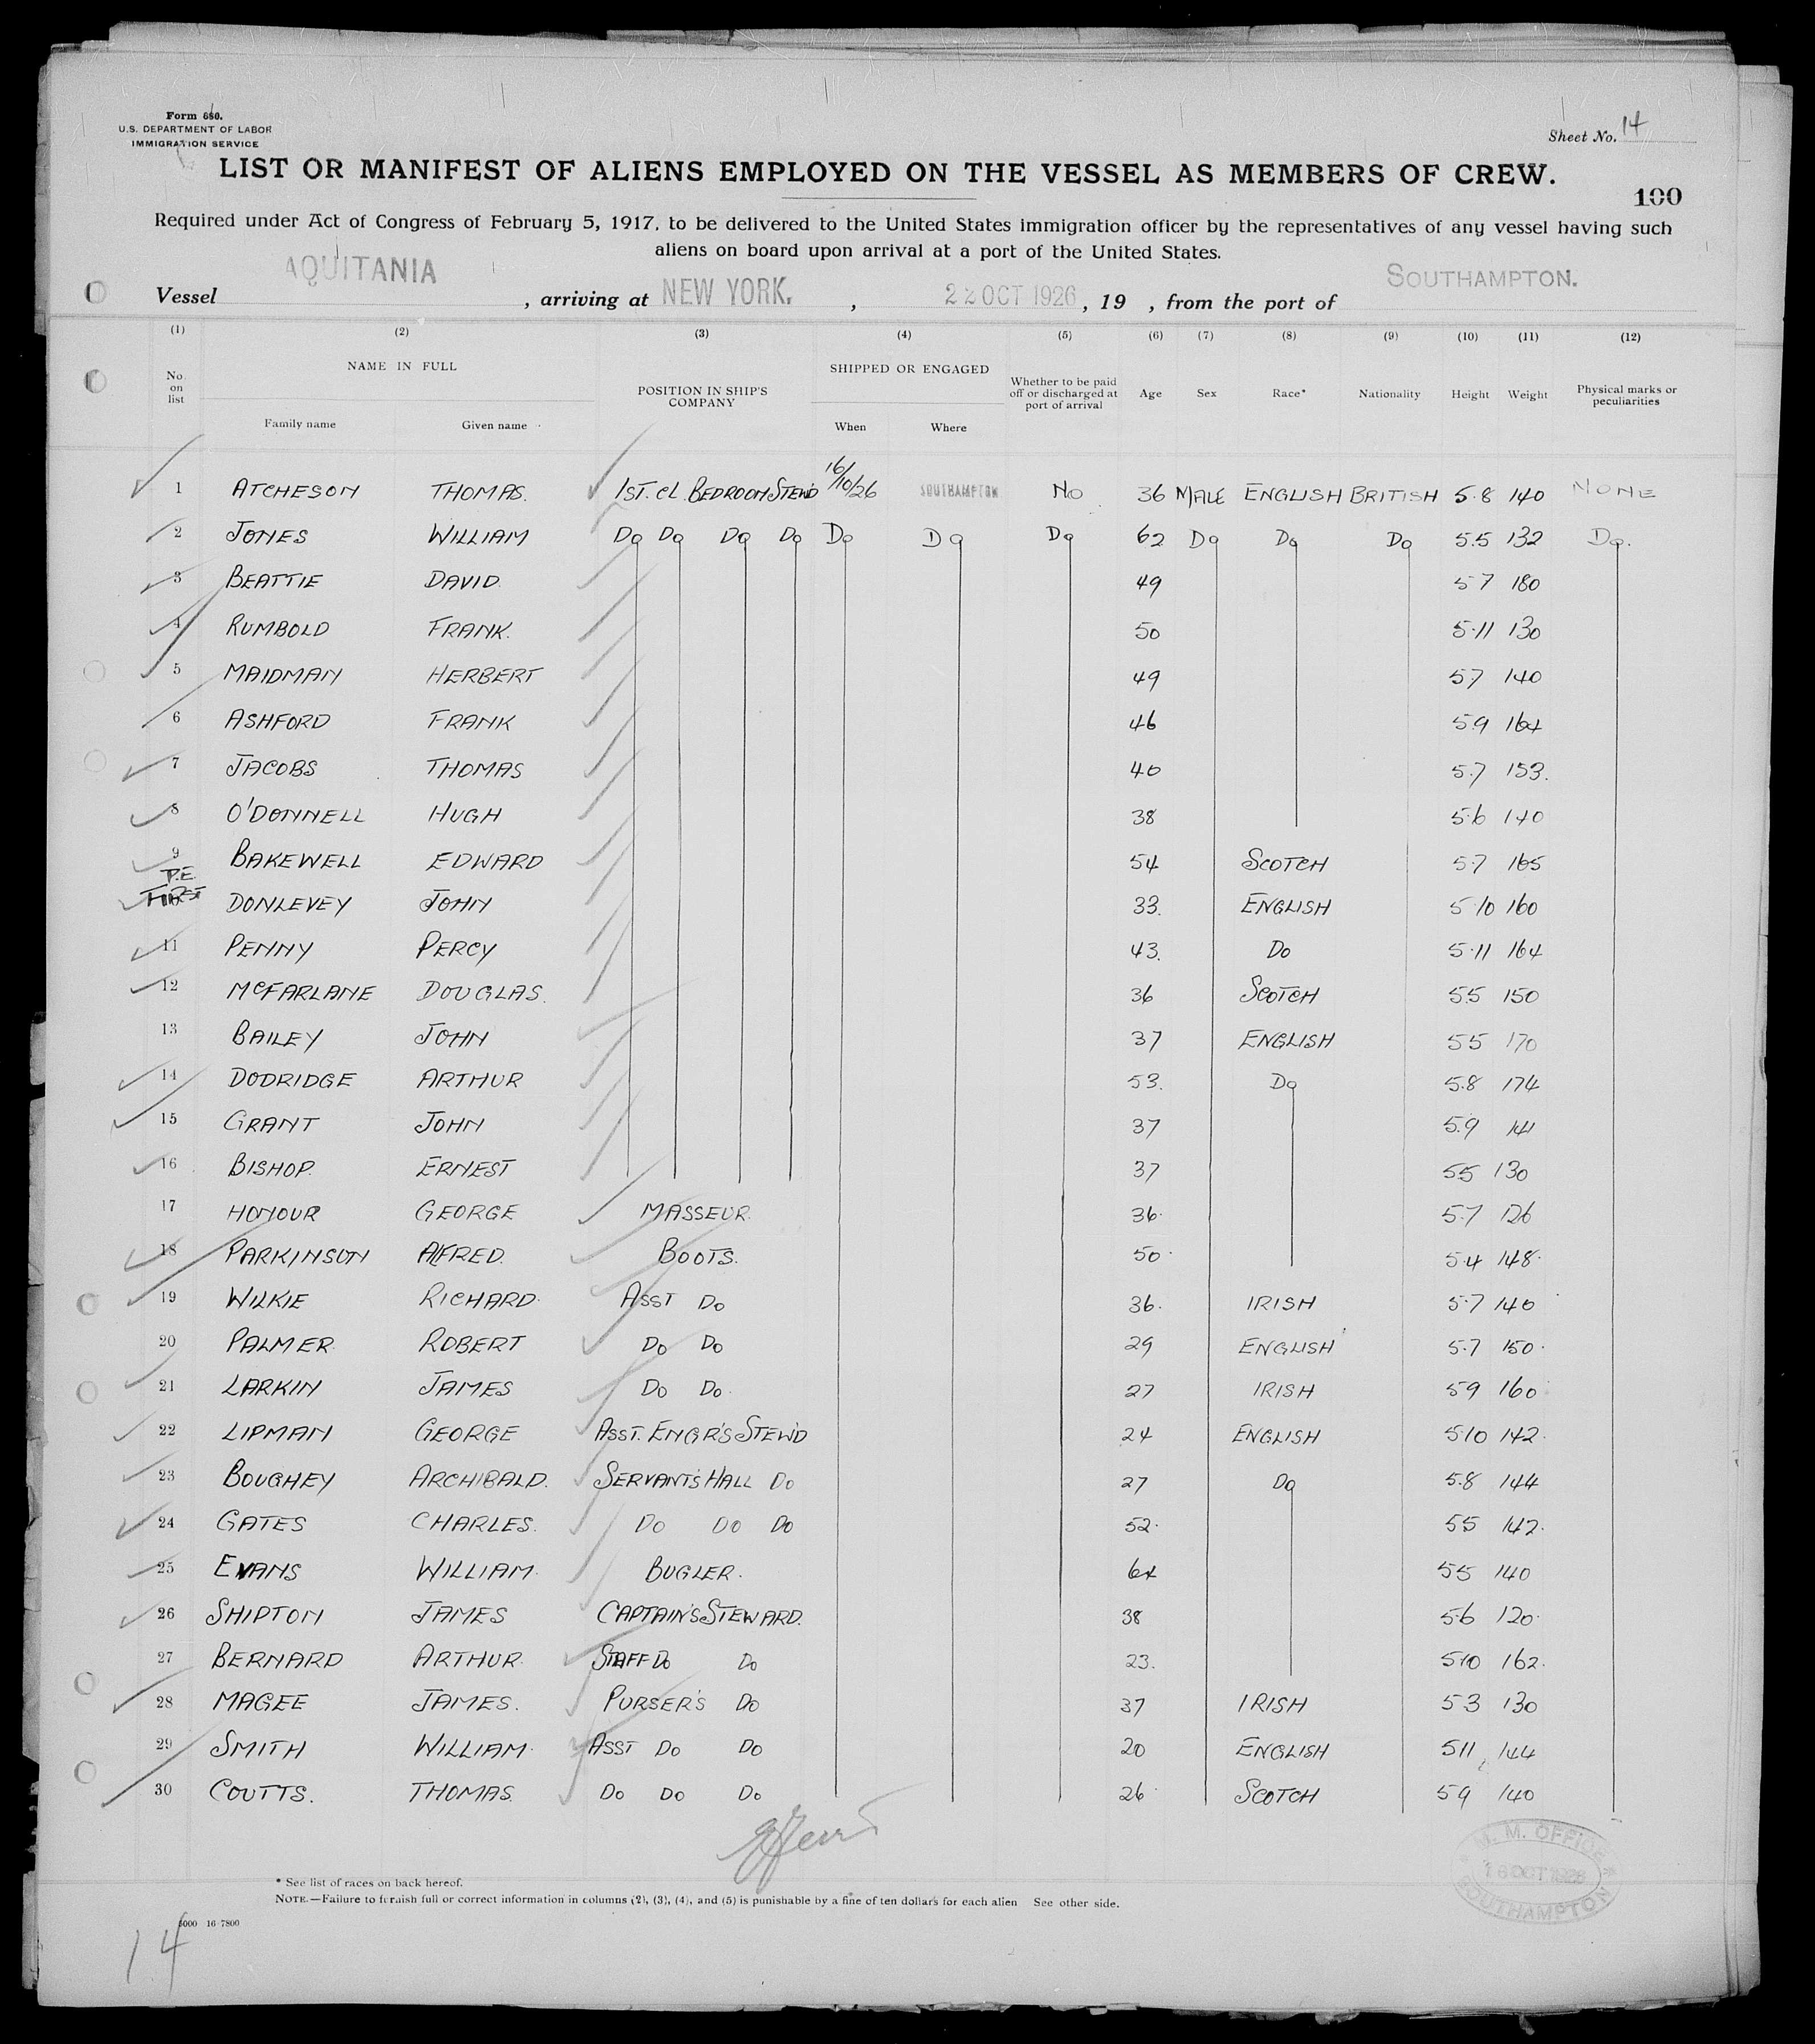 Form 680.
U.S. DEPARTMENT OF LABOR
IMMIGRATION SERVICE
Sheet No. 14
LIST OR MANIFEST OF ALIENS EMPLOYED ON THE VESSEL AS MEMBERS OF CREW.
100
Required under Act of Congress of February 5, 1917, to be delivered to the United States immigration officer by the representatives of any vessel having such
aliens on board upon arrival at a port of the United States.
Vessel AQUITANIA , arriving at NEW YORK. , 22 OCT 1926 , 19 , from the port of SOUTHAMPTON.
(1) (2) (3) (4) (5) (6) (7) (8) (9) (10) (11) (12)
No. on list NAME IN FULL Family name Given name POSITION IN SHIP'S COMPANY SHIPPED OR ENGAGED When Where Whether to be paid off or discharged at port of arrival Age Sex Race* Nationality Height Weight Physical marks or peculiarities
1 ATCHESON THOMAS. 1ST. CL. BEDROOM STEW'D 16/10/26 SOUTHAMPTON NO 36 MALE ENGLISH BRITISH 5.8 140 NONE
2 JONES WILLIAM DO DO DO DO DO DO DO 62 DO DO DO 5.5 132 DO.
3 BEATTIE DAVID. 49 5 7 180
4 RUMBOLD FRANK. 50 5.11 130
5 MAIDMAN HERBERT 49 5.7 140
6 ASHFORD FRANK 46 5.9 164
7 JACOBS THOMAS 40 5.7 153.
8 O'DONNELL HUGH 38 5.6 140
9 BAKEWELL EDWARD 54 SCOTCH 5.7 165
P.E.
FIRST DONLEVEY JOHN 33. ENGLISH 5 10 160
11 PENNY PERCY 43. DO 5.11 164
12 McFARLANE DOUGLAS. 36 SCOTCH 5.5 150
13 BAILEY JOHN 37 ENGLISH 5 5 170
14 DODRIDGE ARTHUR 53. DO 5.8 174
15 GRANT JOHN 37 5.9 141
16 BISHOP. ERNEST 37 5.5 130
17 HONOUR GEORGE MASSEUR. 36. 5.7 126
18 PARKINSON ALFRED. BOOTS. 50. 5.4 148.
19 WILKIE RICHARD. ASST DO 36. IRISH 5.7 140
20 PALMER ROBERT DO DO 29 ENGLISH 5.7 150.
21 LARKIN JAMES DO DO. 27 IRISH 5 9 160
22 LIPMAN GEORGE ASST. ENGR'S STEW'D 24 ENGLISH 5.10 142.
23 BOUGHEY ARCHIBALD. SERVANT'S HALL DO 27 DO 5.8 144
24 GATES CHARLES. DO DO DO 52. 5 5 142.
25 EVANS WILLIAM. BUGLER. 64 5 5 140
26 SHIPTON JAMES CAPTAIN'S STEWARD. 38 5.6 120.
27 BERNARD ARTHUR. STAFF DO DO 23. 5.10 162.
28 MAGEE JAMES. PURSER'S DO 37 IRISH 5.3 130
29 SMITH WILLIAM. ASST DO DO 20 ENGLISH 5 11 144
30 COUTTS. THOMAS. DO DO DO 26. SCOTCH 5 9 140
M. M. OFFICE
16 OCT 1926
SOUTHAMPTON
* See list of races on back hereof.
NOTE.—Failure to furnish full or correct information in columns (2), (3), (4), and (5) is punishable by a fine of ten dollars for each alien See other side.
5000 16-7800
14